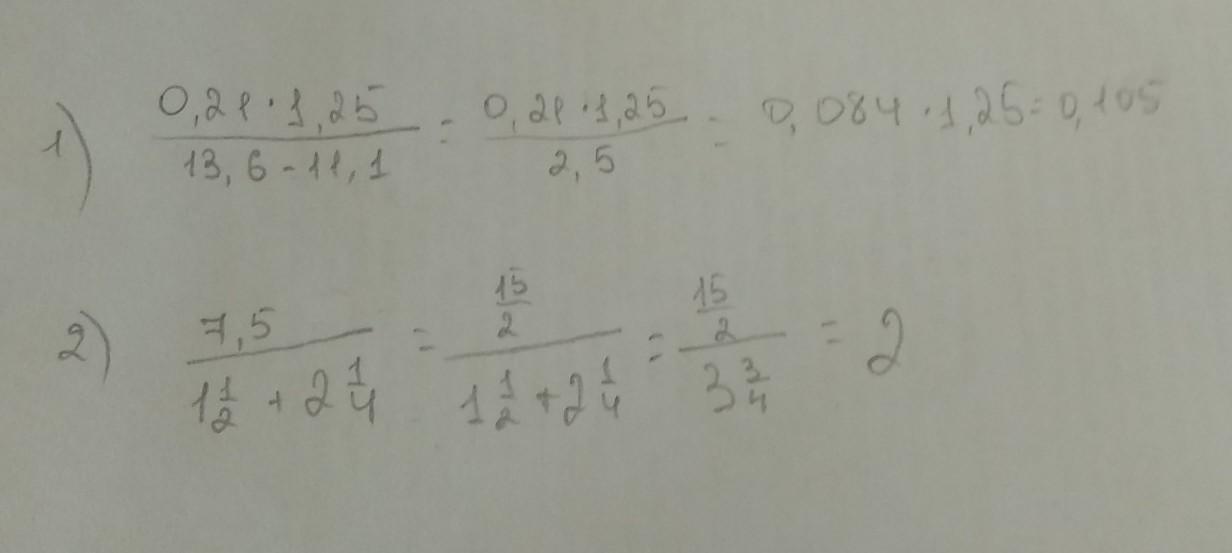 1) (0,21 · 1,25)/(13,6 - 11,1) = (0,21 · 1,25)/(2,5) = 0,084 · 1,25 = 0,105
2) (7,5)/(1 1/2 + 2 1/4) = (15/2)/(1 1/2 + 2 1/4) = (15/2)/(3 3/4) = 2